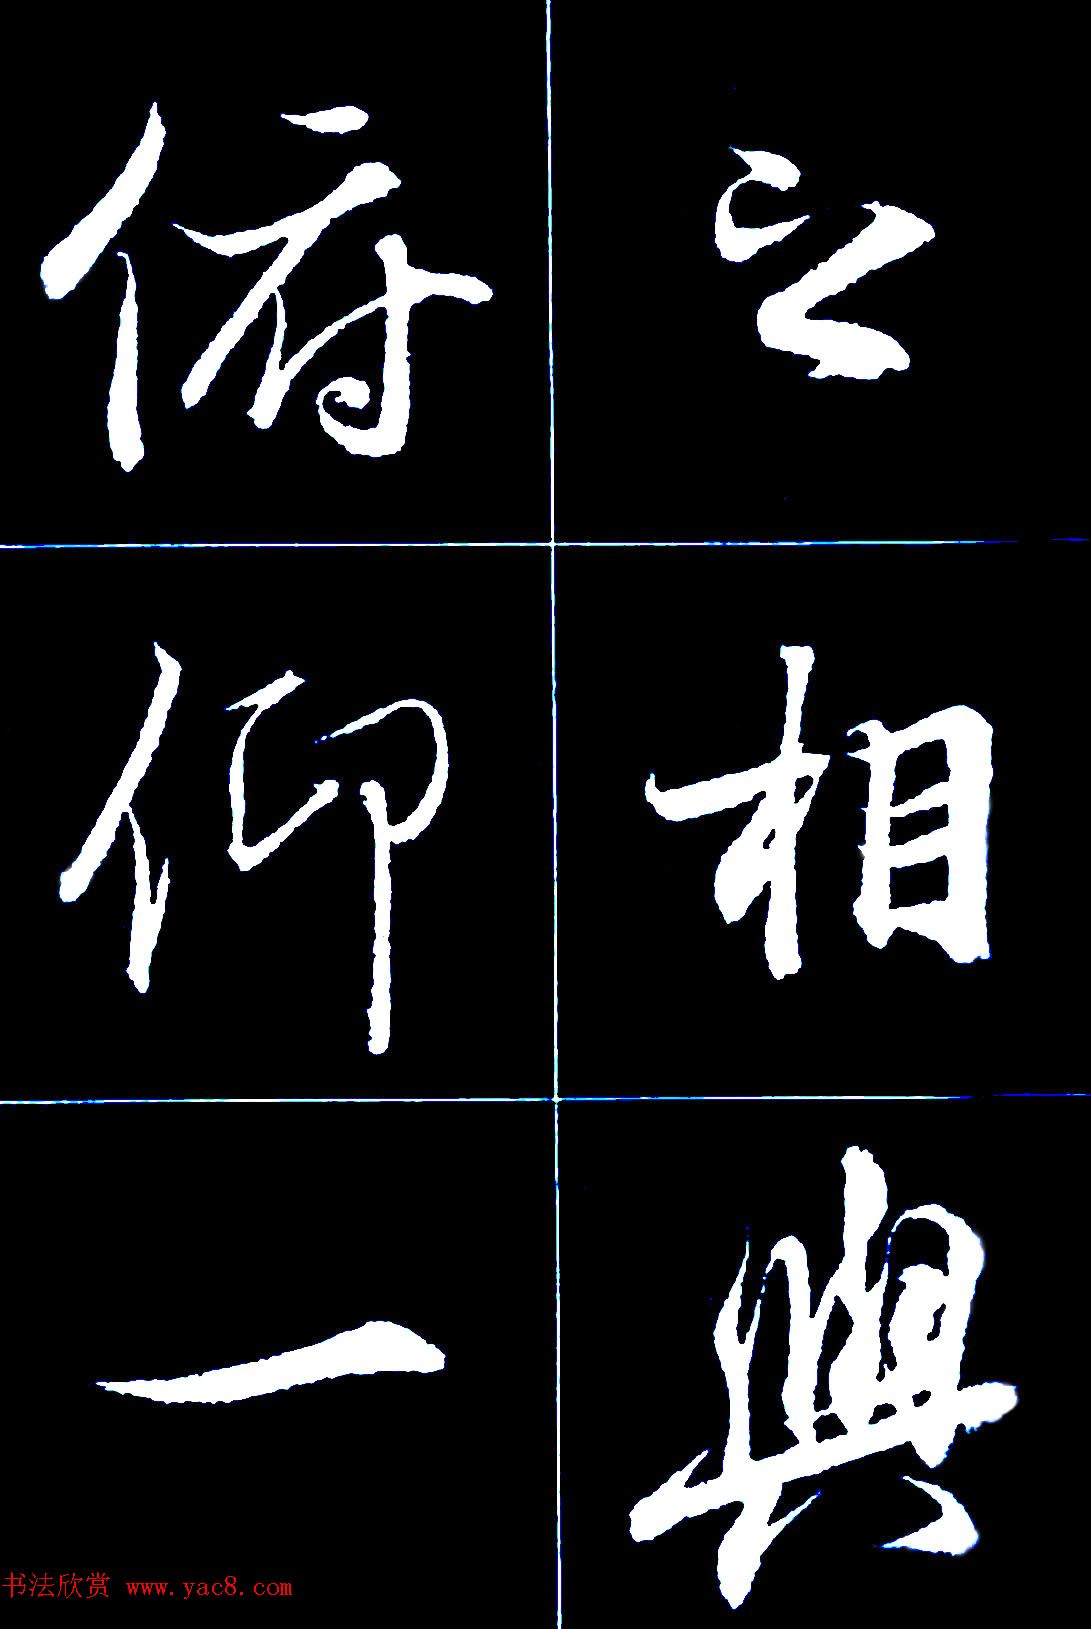 之相與
俯仰一
书法欣赏 www.yac8.com